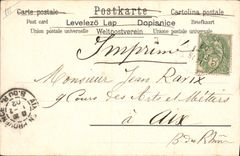 Carte postale Postkarte Cartolina postale
Post card Levelező Lap Dopisnice Briefkaart
Union postale universelle Weltpostverein Union postale universelle
Imprimé
Monsieur Jean
9 Cours des Arts et Métiers
à Aix
B. du Rhône
5